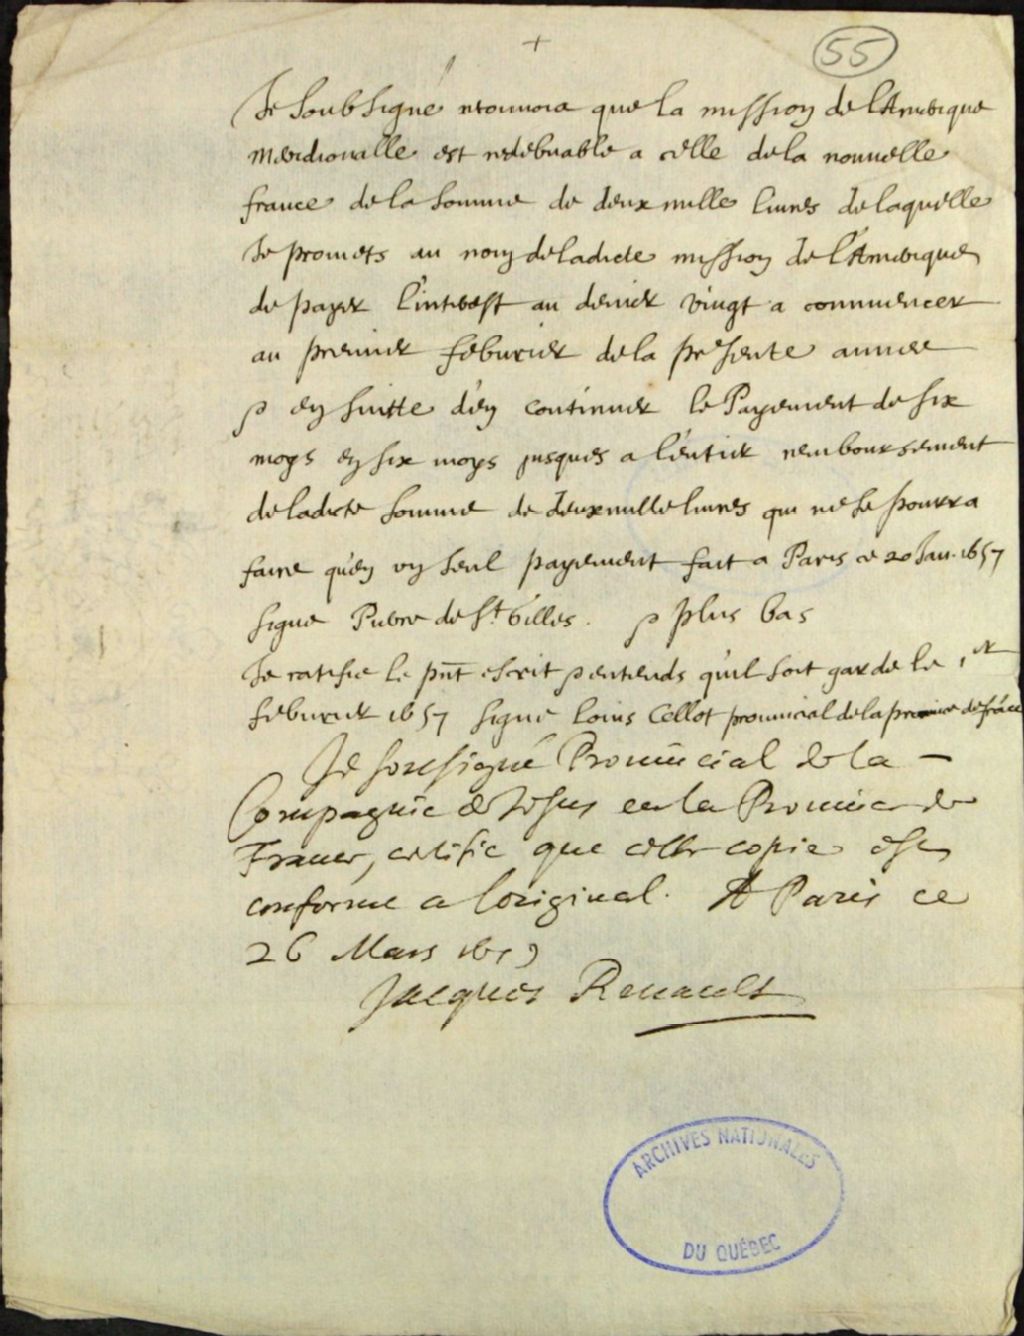 +
55
Je soubsigné reconnois que la mission de l'Amerique
Meridionalle est redebuable a celle de la nouvelle
france de la somme de deux mille liures de laquelle
Je promets au nom de ladicte mission de l'Amerique
de payer l'interest au denier vingt a commencer
au premier feburier de la presente annee
& en suitte d'en continuer le Payement de six
moys en six moys jusques a l'entier remboursement
de ladicte somme de deux mille liures qui ne se pourra
faire qu'en un seul payement fait a Paris ce 20 Jan. 1657
signé Pierre de St. Gilles. & plus bas
Je ratifie le pnt escrit & entends qu'il soit gardé le 1er
feburier 1657 signé Louis Cellot prouincial de la prouince de frãce
Je soussigné Prouincial de la —
Compagnie de Jesus en la Prouince de
France, certifie que cette copie est
conforme a loriginal. A Paris ce
26 Mars 1657
Jacques Renault
ARCHIVES NATIONALES
DU QUÉBEC